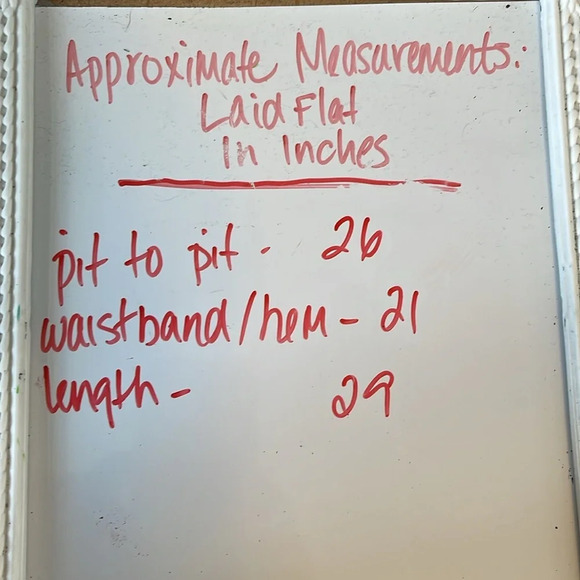 Approximate Measurements:
Laid Flat
In Inches
pit to pit - 26
waistband/hem - 21
length - 29